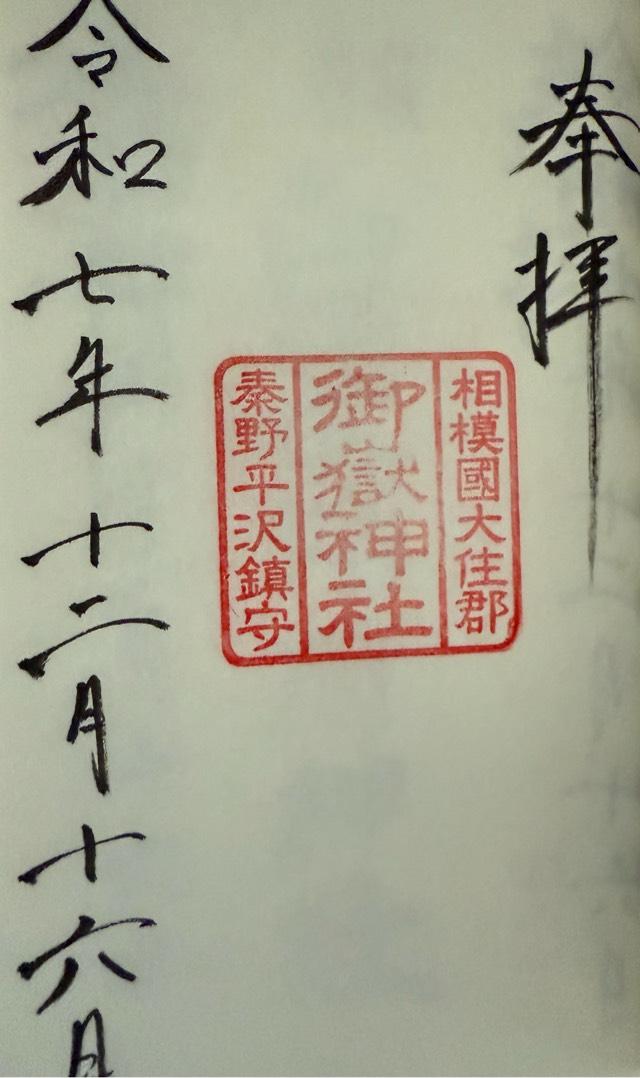 奉拝
相模國大住郡
御嶽神社
秦野平沢鎮守
令和七年十二月十六日